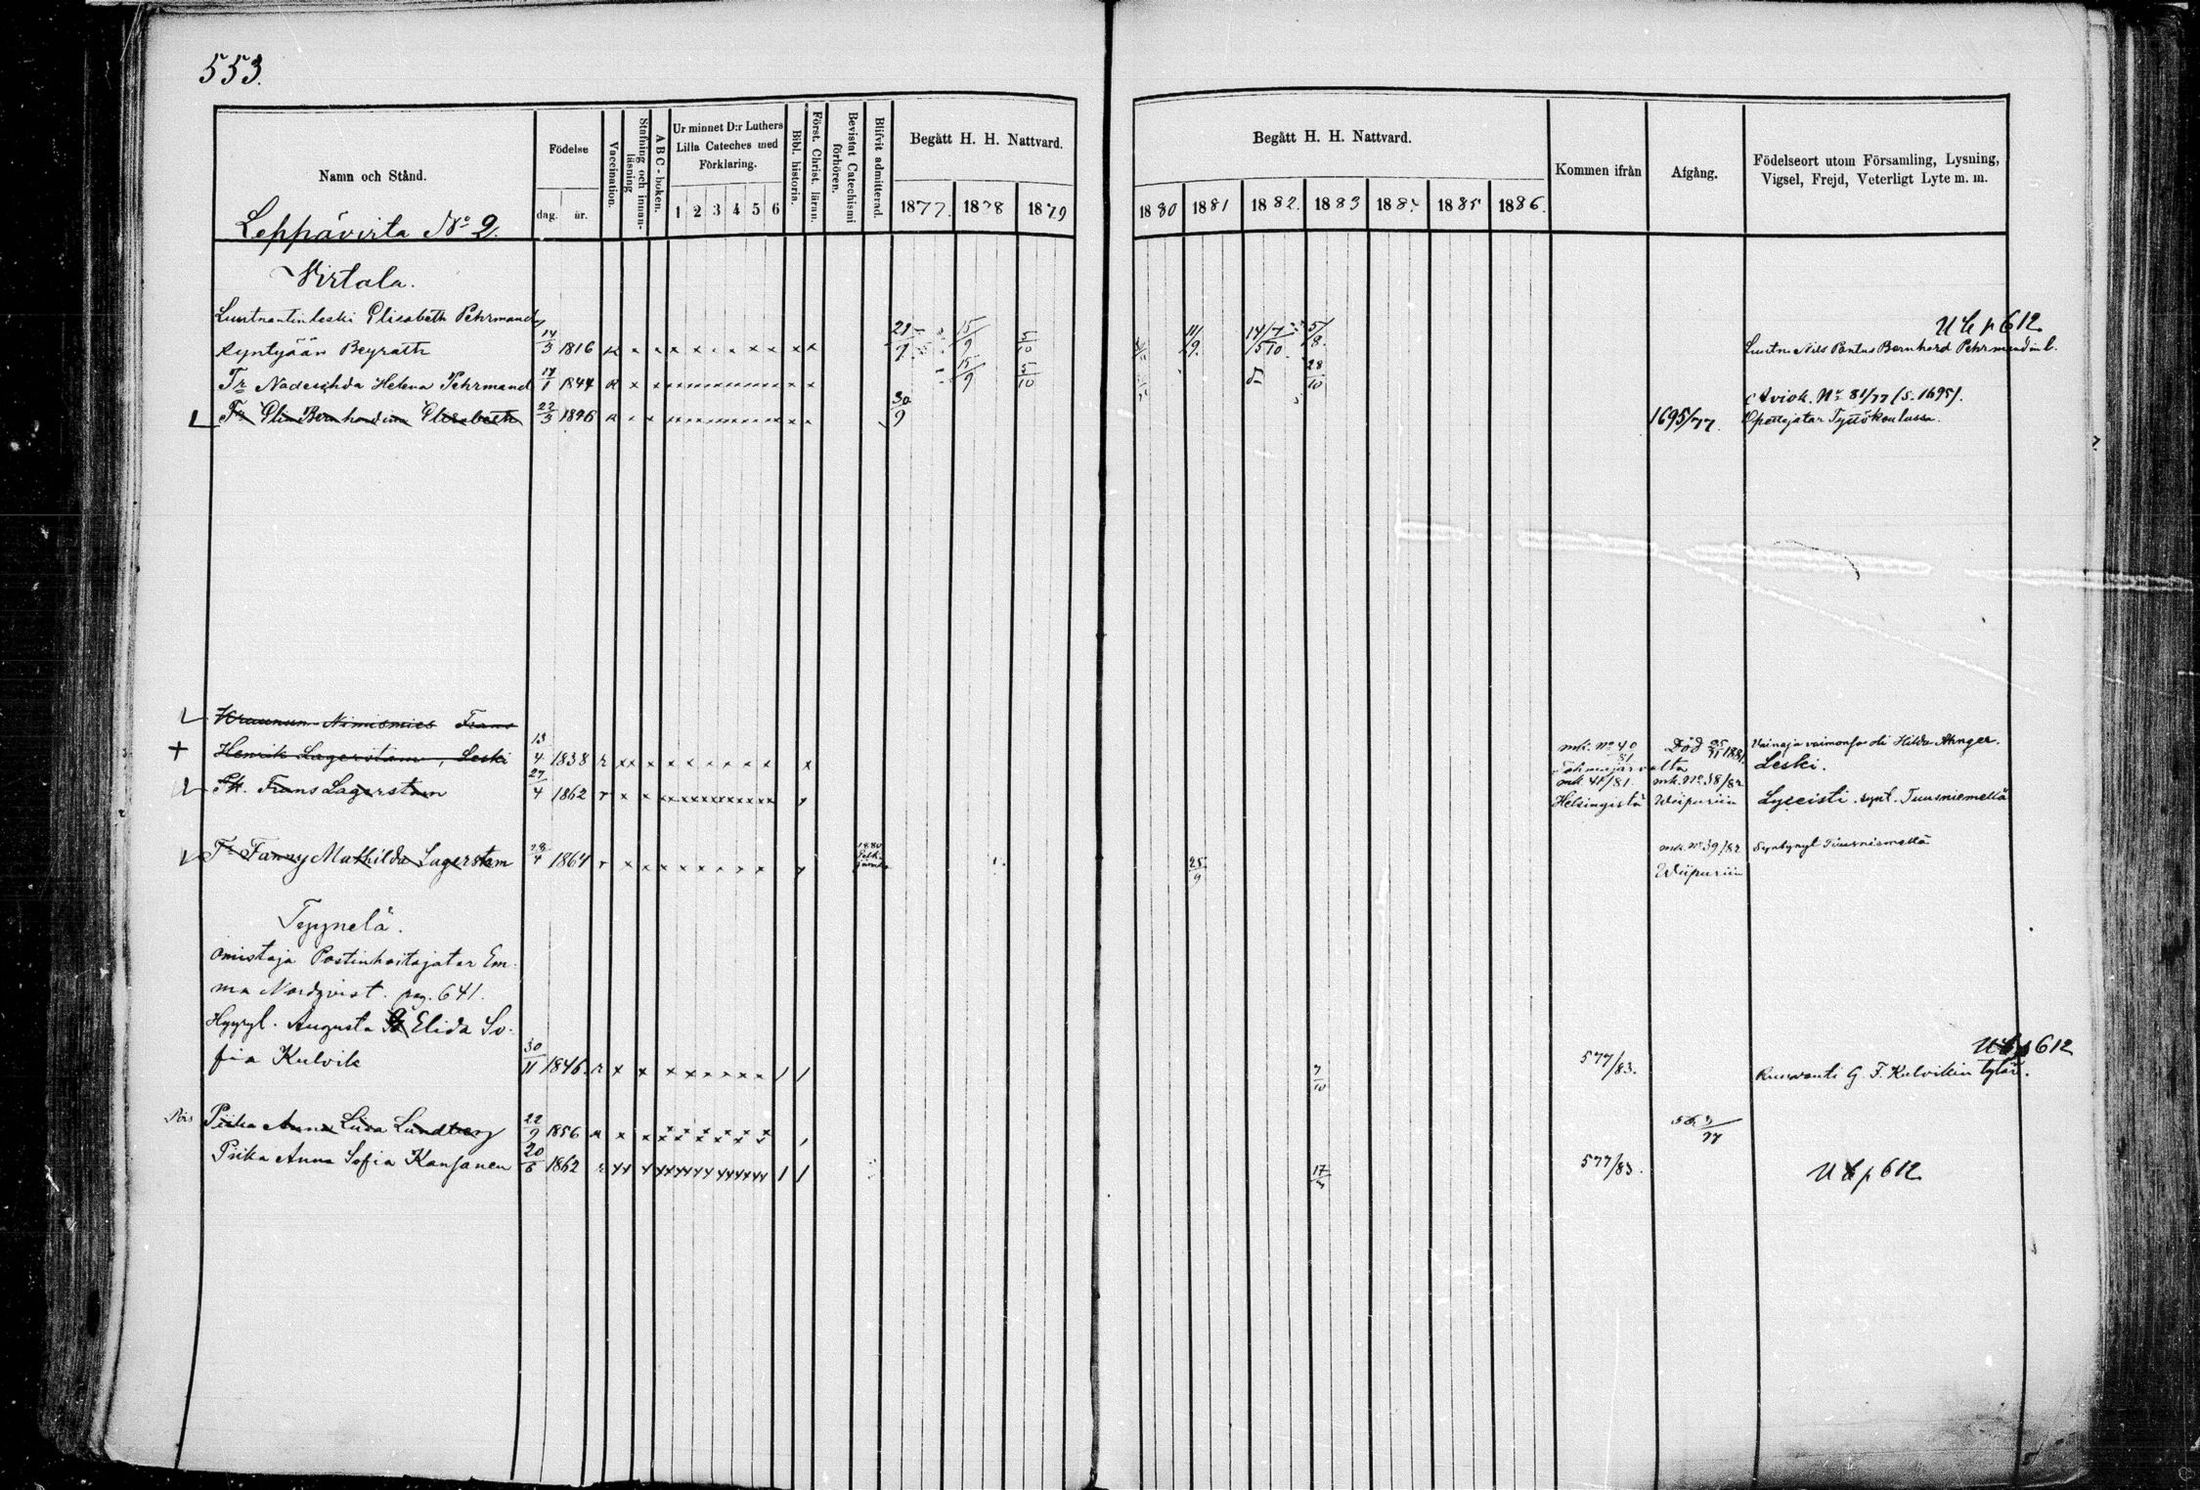 553.
Namn och Stånd.
Födelse
dag. år.
Vaccination.
Stafning och innan-läsning
ABC-boken.
Ur minnet D:r Luthers Lilla Cateches med Förklaring.
1 2 3 4 5 6
Bibl. historia.
Först. Christ. läran.
Bevistat Catechismi förhören.
Blifvit admitterad.
Begått H. H. Nattvard.
1877. 1878 1879
Begått H. H. Nattvard.
1880 1881 1882. 1883 1884 1885 1886.
Kommen ifrån
Afgång.
Födelseort utom Församling, Lysning, Vigsel, Frejd, Veterligt Lyte m. m.
Leppävirta No 2.
Virtala.
Luutnantinleski Elisabeth Pehrmand,
U k p 612
syntyään Beyrath 14/3 1816 15/9 5/10 11/9 5/8 Luutn. Nils Pontus Bernhard Pehrmandin l.
Tr Nadeschda Helena Pehrmand 17/1 1844 15/9 5/10 28/10
Aviok. No 81/77 (s. 1695).
Tr Elin Bernhardina Elisabeth 22/3 1846 30/9 1695/77. Opettajatar Tyttökoulussa.
Kruunun Nimismies Frans
Henrik Lagerstam, Leski 13/4 1838 mk. No 40/81 Tohmajärveltä Död 25/11 1881 Vainaja vaimonsa oli Hilda Ahnger. Leski.
Pk. Frans Lagerstam 27/4 1862 mk 41/81. Helsingistä mk. No 38/82 Wiipuriin Lyseisti. synt. Tuusniemellä
Tr Fanny Mathilda Lagerstam 28/4 1864 1880 25/9 mk. No 39/82 Wiipuriin Syntynyt Tuusniemellä
Tyynelä.
omistaja Postinhoitajatar Em-
ma Nordqvist. pag. 641.
Hyyryl. Augusta Elida So-
fia Kulvik 30/11 1846. 7/10 577/83. U k p 612
Ruuvanti G. F. Kulvikin tytär.
Pois Piika Anna Liisa Lundberg 22/9 1856
Piika Anna Sofia Kansanen 20/6 1862 577/83. U k p 612